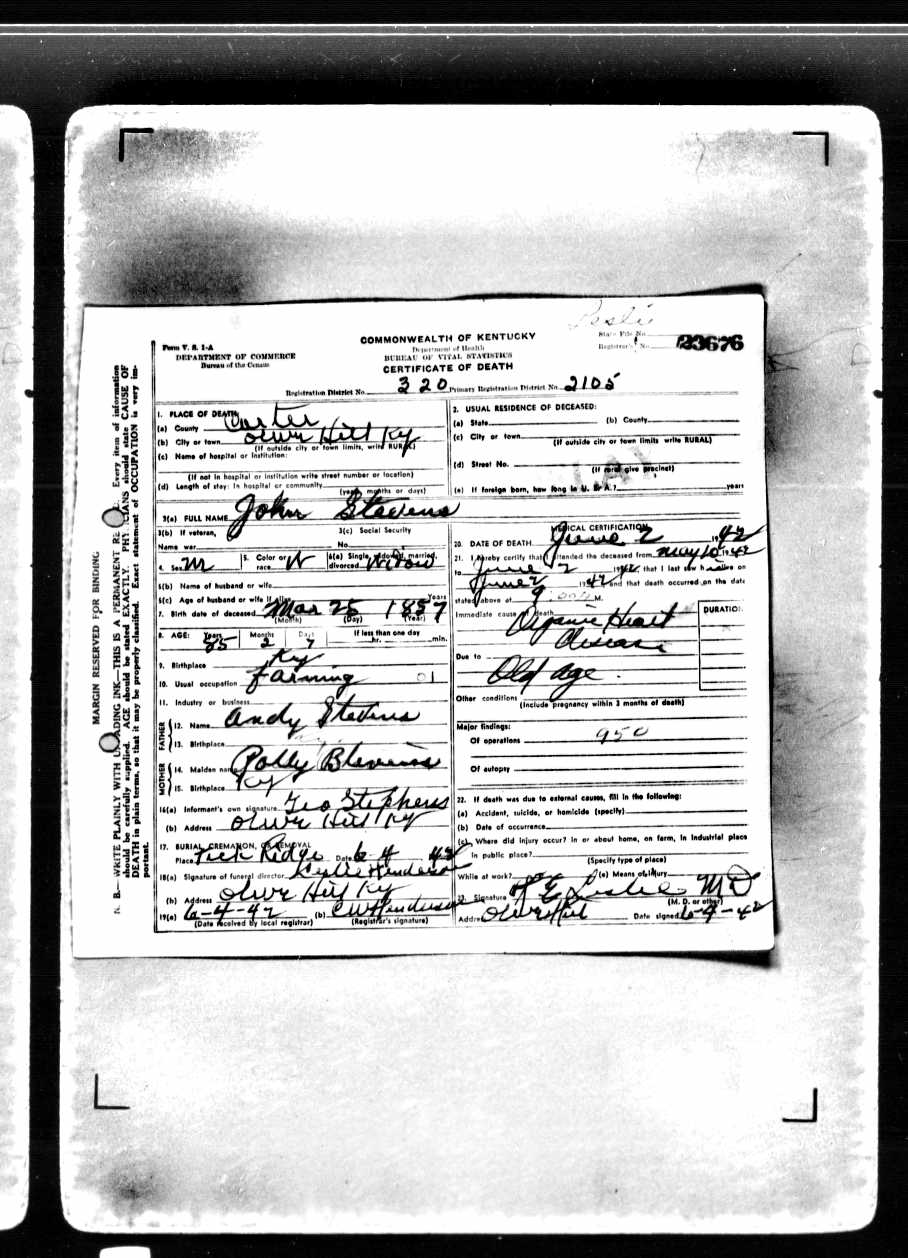 Leslie
Form V. S. 1-A
DEPARTMENT OF COMMERCE
Bureau of the Census
COMMONWEALTH OF KENTUCKY
Department of Health
BUREAU OF VITAL STATISTICS
CERTIFICATE OF DEATH
State File No.
Registrar's No. 23676
Registration District No. 320 Primary Registration District No. 2105
MARGIN RESERVED FOR BINDING
N. B.—WRITE PLAINLY WITH UNFADING INK—THIS IS A PERMANENT RE Every item of information
should be carefully supplied. AGE should be stated EXACTLY. PHYSICIANS should state CAUSE OF
DEATH in plain terms, so that it may be properly classified. Exact statement of OCCUPATION is very im-
portant.
1. PLACE OF DEATH
(a) County Carter
(b) City or town Olive Hill Ky
(If outside city or town limits, write RURAL)
(c) Name of hospital or institution:
(If not in hospital or institution write street number or location)
(d) Length of stay: In hospital or community
(years, months or days)
2. USUAL RESIDENCE OF DECEASED:
(a) State (b) County
(c) City or town
(If outside city or town limits write RURAL)
(d) Street No.
(If rural give precinct)
(e) If foreign born, how long in U. S. A.? years
3(a) FULL NAME John Stevens
3(b) If veteran,
Name war
3(c) Social Security
No.
4. Sex M
5. Color or race W
6(a) Single, widowed, married, divorced Widow
6(b) Name of husband or wife
6(c) Age of husband or wife if alive Years
7. Birth date of deceased Mar 25 1857
(Month) (Day) (Year)
8. AGE: Years 85 Months 2 Days 7 If less than one day
hr. min.
9. Birthplace Ky
10. Usual occupation farming 01
11. Industry or business
FATHER
12. Name Andy Stevens
13. Birthplace
MOTHER
14. Maiden name Polly Blevins
15. Birthplace Ky
16(a) Informant's own signature Geo Stephens
(b) Address Olive Hill Ky
17. BURIAL, CREMATION, OR REMOVAL
Place Tick Ridge Date 6 4 42
18(a) Signature of funeral director Leslie Henderson
(b) Address Olive Hill Ky
19(a) 6-4-42 (b) C W Henderson
(Date received by local registrar) (Registrar's signature)
MEDICAL CERTIFICATION
20. DATE OF DEATH June 2 1942
21. I hereby certify that I attended the deceased from May 10 1942
to June 2 1942, that I last saw h alive on
June 2 1942 and that death occurred on the date
stated above at 9:00 M.
Immediate cause of death DURATION
Organic Heart
disease
Due to
Old age.
Other conditions
(Include pregnancy within 3 months of death)
Major findings:
Of operations 950
Of autopsy
22. If death was due to external causes, fill in the following:
(a) Accident, suicide, or homicide (specify)
(b) Date of occurrence
(c) Where did injury occur? In or about home, on farm, in industrial place
in public place?
(Specify type of place)
While at work? (e) Means of injury
23. Signature Leslie M D
(M. D. or other)
Address Olive Hill Date signed 6-4-42